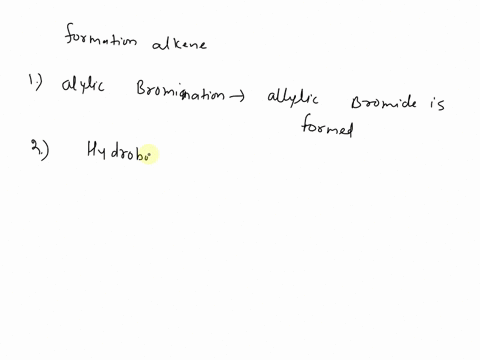 formation alkene
1.) alylic Bromination → allylic Bromide is
formed
2.) Hydrobo